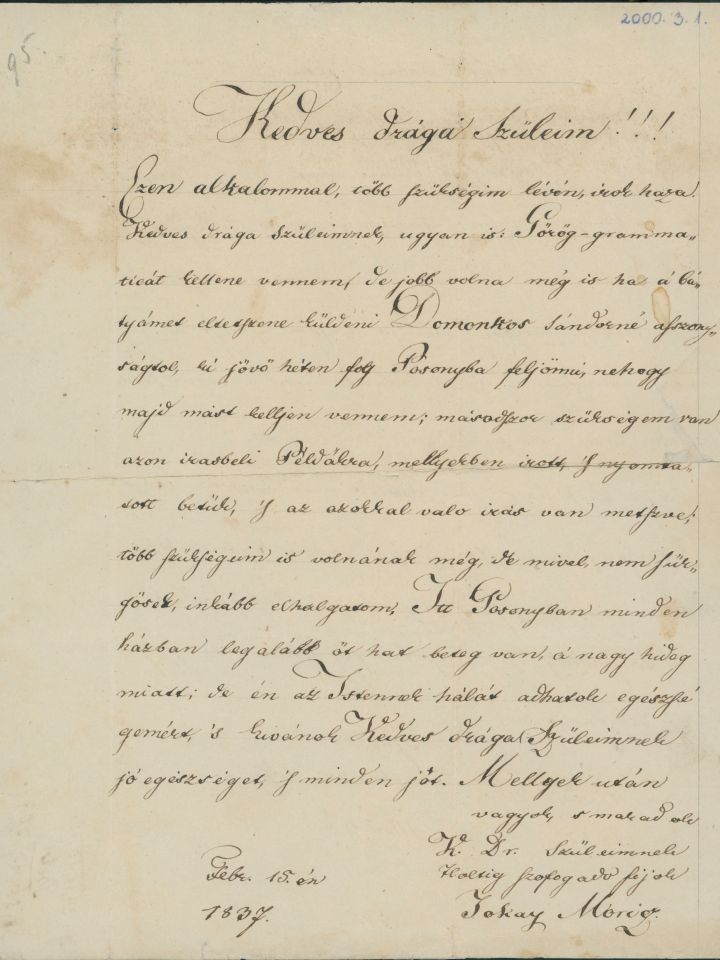 2000. 3. 1.
95.
Kedves drága Szüleim!!!
Ezen alkalommal, több szükségim lévén, irok haza.
Kedves drága Szüleimnek, ugyan is: Görög-gramma„
ticát kellene vennem, de jobb volna még is ha á bá„
tyámét eltetszene küldeni Domonkos Sándorné aſszony„
ságtol, ki jövő héten fog Posonyba feljönni, nehogy
majd mást kelljen vennem; másodszor szükségem van
azon irasbeli Példákra, mellyekben irott, 's nyomta„
tott betük, 's az azokkal valo irás van metszve;
több szükségeim is volnának még, de mivel, nem sür„
gősek, inkább elhalgatom. Itt Posonyban minden
házban legalább öt hat beteg van, á nagy hideg
miatt; de én az Istennek hálát adhatok egészsé
gemért, 's kivánok Kedves drága Szüleimnek
jó egészséget, 's minden jót. Mellyek után
vagyok, s maradok
K. Dr. Szüleimnek
Holtig szofogado fijok
Jokay Móricz.
Febr. 15. én
1837.